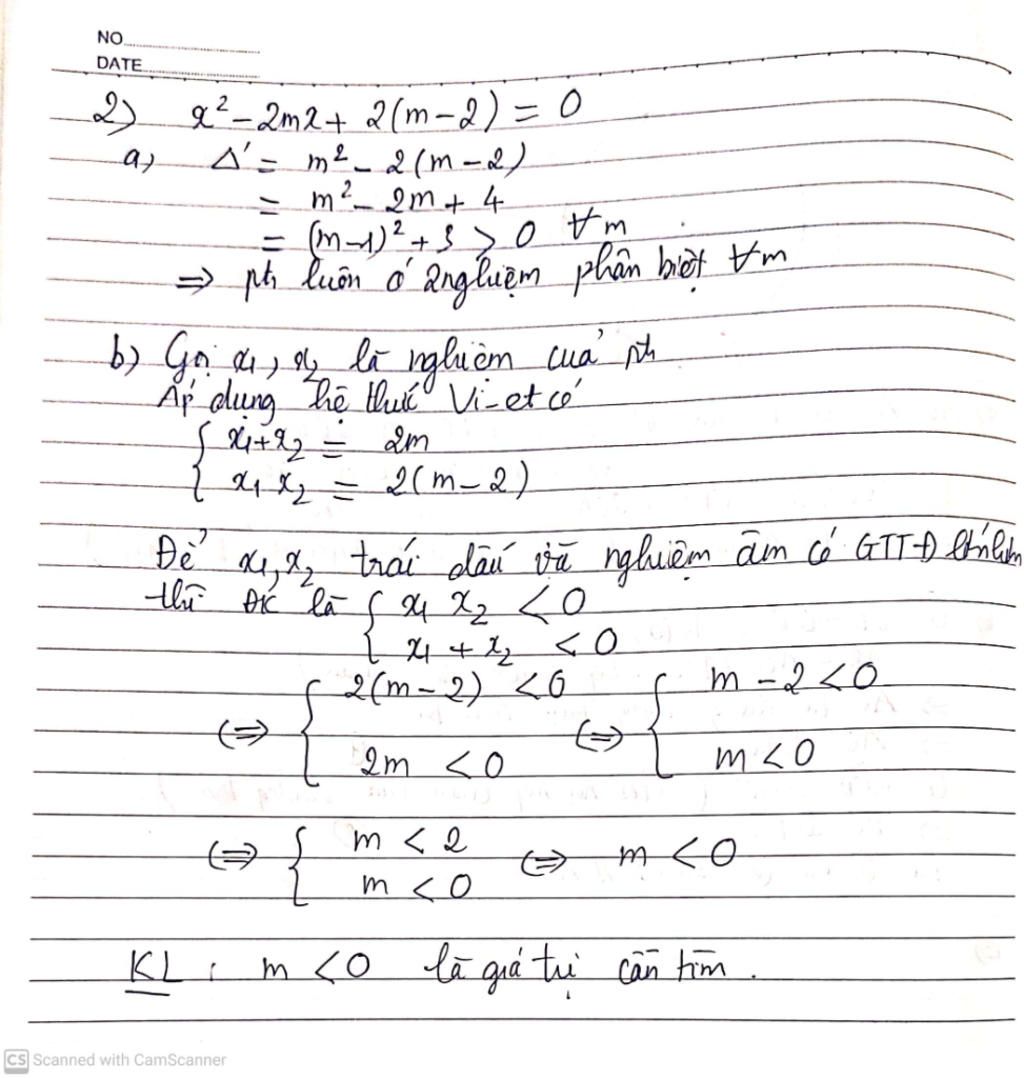 NO
DATE
2) x² - 2mx + 2(m-2) = 0
a, Δ' = m² - 2(m-2)
= m² - 2m + 4
= (m-1)² + 3 > 0 ∀m
⇒ pt luôn có 2 nghiệm phân biệt ∀m
b) Gọi x₁, x₂ là nghiệm của pt
Áp dụng hệ thức Vi-et có
{ x₁+x₂ = 2m
x₁ x₂ = 2(m-2)
Để x₁, x₂ trái dấu và nghiệm âm có GTTĐ lớn hơn
thì ĐK là { x₁ x₂ < 0
x₁ + x₂ < 0
⇔ { 2(m-2) < 0 ⇔ { m - 2 < 0
2m < 0 m < 0
⇔ { m < 2 ⇔ m < 0
m < 0
KL : m < 0 là giá trị cần tìm.
CS Scanned with CamScanner